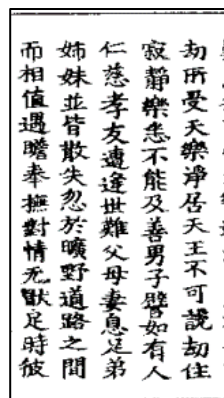 劫所受天樂淨居天王不可說劫住
寂靜樂悉不能及善男子譬如有人
仁慈孝友遭逢世難父母妻息兄弟
姊妹並皆散失忽於曠野道路之間
而相值遇瞻奉撫對情无猒足時彼